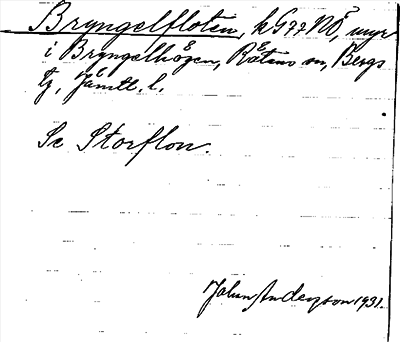 Bryngelfloten, k G77 NÖ, myr
i Bryngelhögen, Rätans sn, Bergs
tg, Jämtl. l.
Se Storflon.
Johan Anderzon 1931.